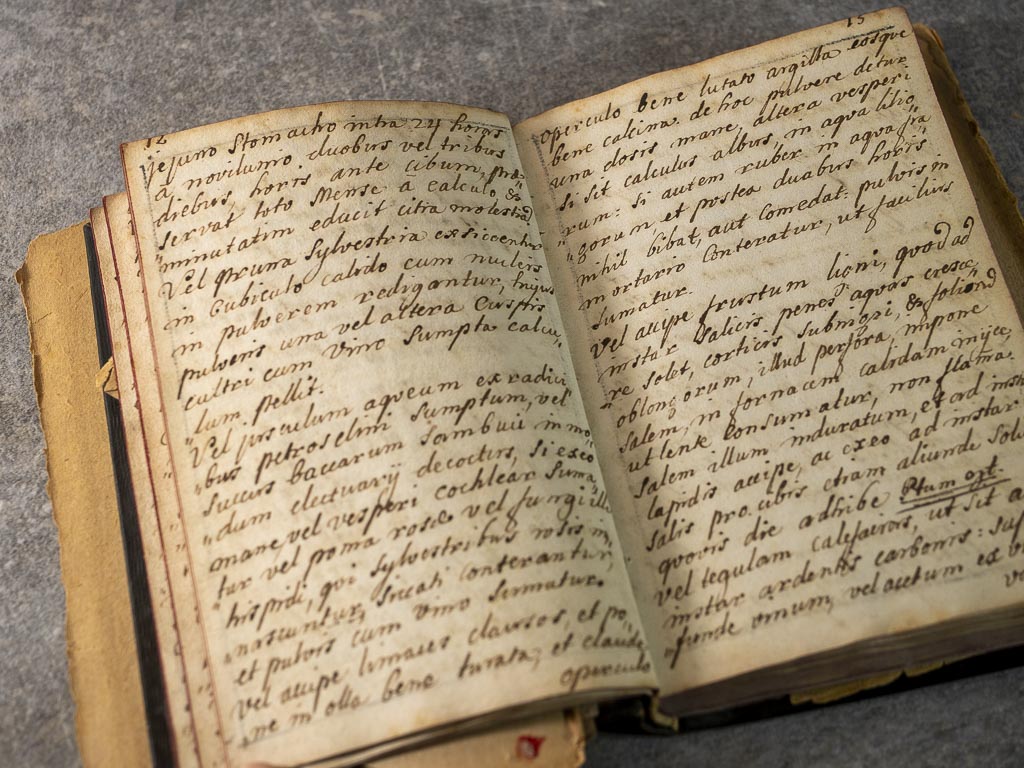 12
jejuno stomacho intra 24 horas
a novilunio duobus vel tribus
diebus, horis ante cibum, præ„
servat toto Mense a calculo, &
„minutatim educit citra molestiã
Vel pruna sylvestria exsiccentur
in cubiculo calido cum nucleis
in pulverem redigantur, hujus
pulveris una vel altera cuspis
cultri cum vino sumpta calcu„
„lum pellit.
Vel jusculum aqueum ex radici„
„bus petroselini sumptum, vel
succus baccarum sambuci in mo„
„dum electuarij decoctus, si ex eo
mane vel vesperi cochlear suma„
„tur vel poma rosæ vel fungi illi
hispidi, qui sylvestribus rosis in„
„nascuntur, siccati conterantur,
et pulvis cum vino sumatur.
Vel accipe limaces clausos, et po„
„ne in olla bene turata, et claude
operculo
13
operculo bene lutato argilla eosque
bene calcina. de hoc pulvere detur
una dosis mane, altera vesperi
si sit calculus albus, in aqua lilio„
„rum: si autem ruber in aqua fra„
„gorum, et postea duabus horis
nihil bibat, aut comedat. pulvis in
mortario conteratur, ut facilius
sumatur.
Vel accipe frustum ligni, quod ad
instar salicis penes aquas cresce„
„re solet, corticis submori, & folior
oblongorum, illud perfora, impone
salem, in fornacem calidam injice,
ut lente consumatur, non flama.
salem illum induratum, et ad inst
lapidis accipe, ac ex eo ad instar
salis pro cibis etiam aliunde sali
quovis die adhibe Ptum est.
vel tegulam calefacies, ut sit a
instar ardentis carbonis: suf
„funde vinum, vel acetum ex v